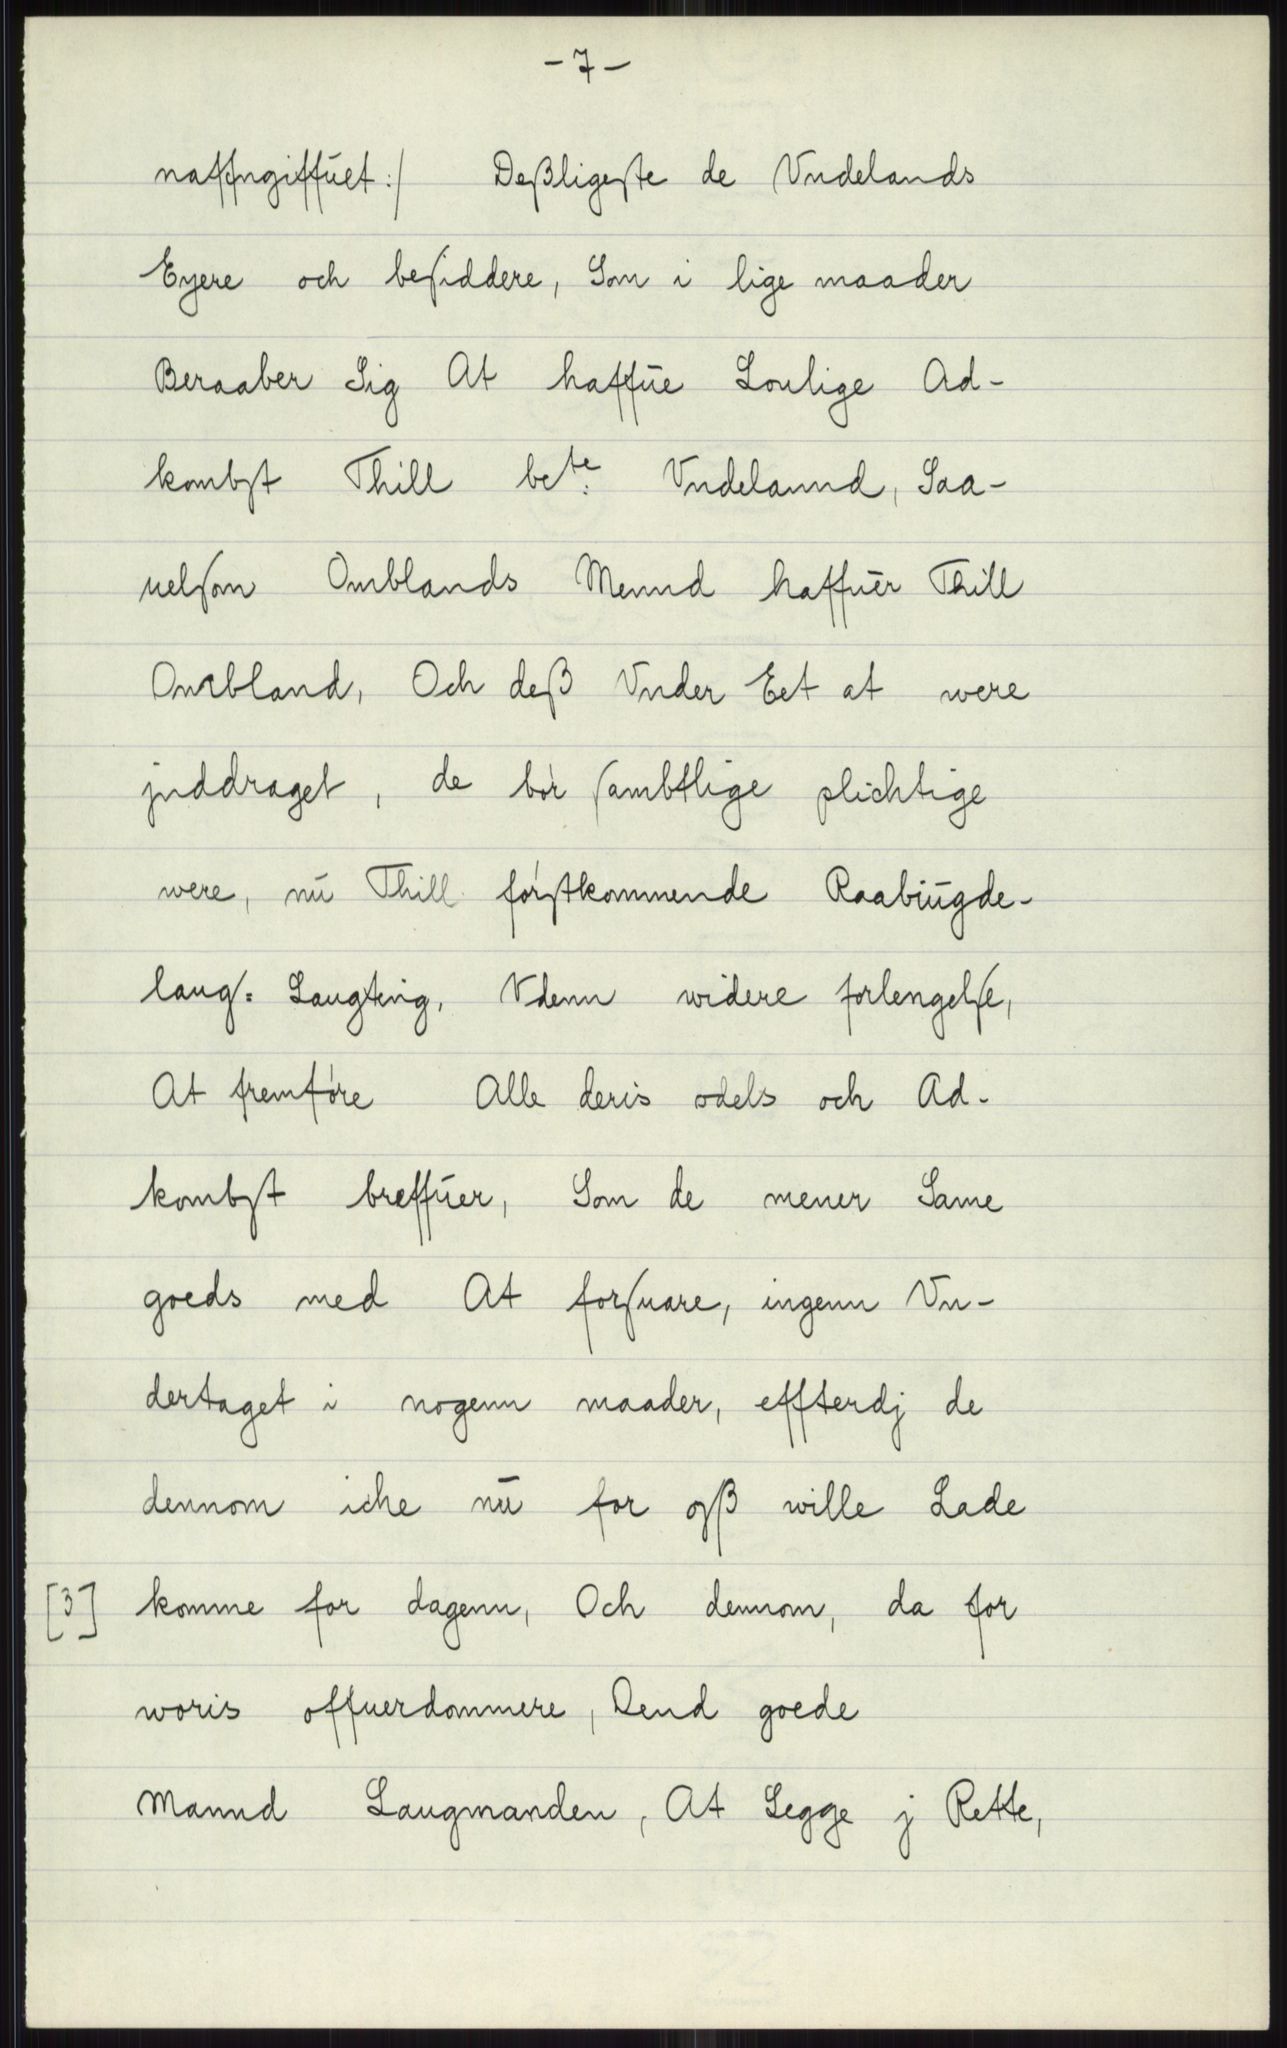 - 7 -
naffngiffuet :/ Deßligeste de Vndelands
Eyere och besiddere, Som i lige maader
Beraaber Sig At haffūe Loulige Ad-
kombst Thill bete: Vndelannd, Saa-
uelsom Omblands Mennd haffūer Thill
Ombland, Och deß Vnder Eet at were
jnddraget, de bór sambtlige plichtige
were, nū Thill fórstkommende Raabiūgde-
laugs: Laugting, Vdenn widere forlengelse,
At fremfóre Alle deris odels och Ad-
kombst breffūer, Som de mener Same
goeds med At forsuare, ingenn Vn-
dertaget i nogenn maader, effterdj de
dennom iche nū for oß wille Lade
[3] komme for dagenn, Och dennom, da for
woris offuerdommere, Dend goede
Mannd Laugmanden, At Legge j Rette,